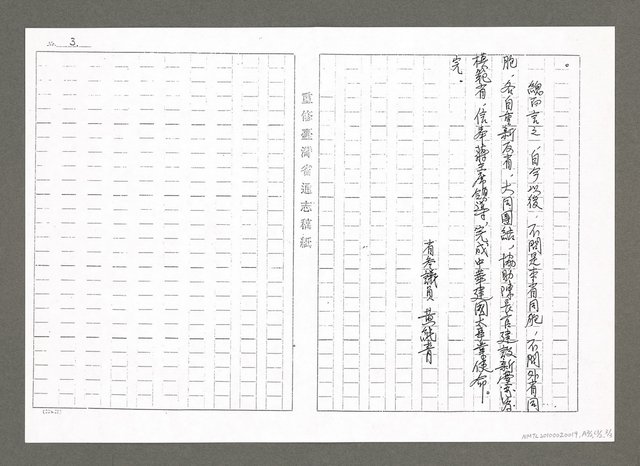 No. 3.
。
總而言之，自今以後，不問是本省同胞，不問外省同
胞，各自重新反省，大同團結，協助陳長官建設新臺灣為
模範省，信奉蔣主席領導，完成中華建國大業當使命。
完。
省參議員 黃純青
重修臺灣省通志稿紙